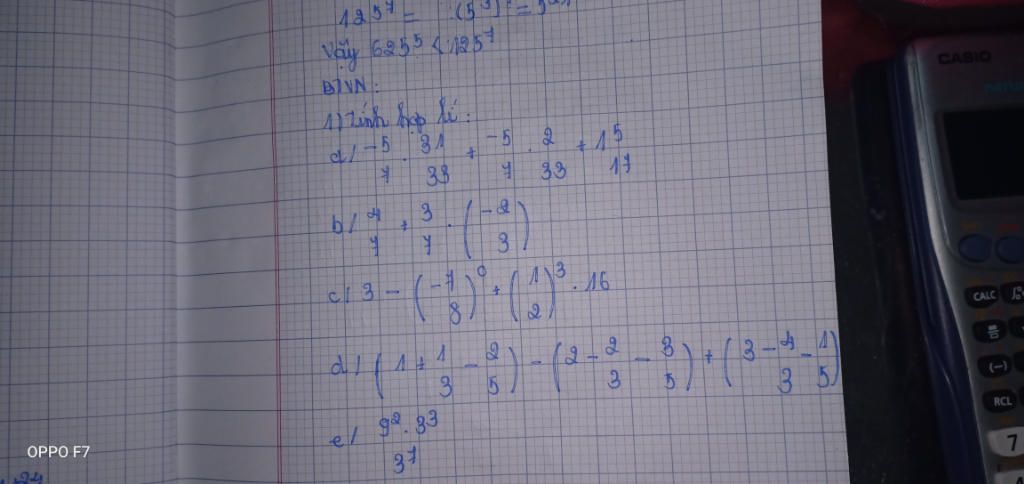 125⁷ = (5³)⁷ =
Vậy 625⁵ < 125⁷
BTVN:
1) Tính hợp lí:
a/ -5/7 . 31/33 + -5/7 . 2/33 + 1 5/17
b/ 4/7 + 3/7 . (-2/3)
c/ 3 - (-7/8)⁰ + (1/2)³ . 16
d/ (1 + 1/3 - 2/5) - (2 - 2/3 - 3/5) + (3 - 4/3 - 1/5)
e/ 9² . 3³ / 3⁷
CASIO
CALC
(-)
RCL
7
OPPO F7